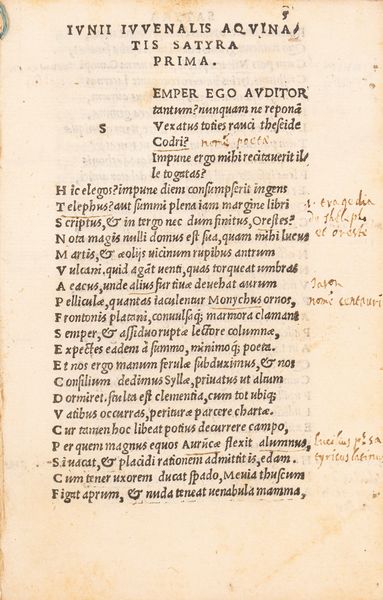 IVNII IVVENALIS AQVINA/
TIS SATYRA
PRIMA.
S EMPER EGO AVDITOR
tantum? nunquam ne reponã
Vexatus toties rauci theseide
Codri? nome poeta
Impune ergo mihi recitauerit il/
le togatas?
Hic elegos? impune diem consumpserit ingens
Telephus? aut summi plena iam margine libri
Scriptus, & in tergo nec dum finitus, Orestes?
Nota magis nulli domus est sua, quam mihi lucus
Martis, & æolijs uicinum rupibus antrum
Vulcani. quid agãt uenti, quas torqueat umbras
Aeacus, unde alius furtiuæ deuehat aurum
Pelliculæ, quantas iaculetur Monychus ornos,
Frontonis platani, conuulsaq; marmora clamant
Semper, & assiduo ruptæ lectore columnæ,
Expectes eadem à summo, minimoq; poeta.
Et nos ergo manum ferulæ subduximus, & nos
Consilium dedimus Syllæ, priuatus ut altum
Dormiret. stulta est clementia, cum tot ubiq;
Vatibus occurras, perituræ parcere chartæ.
Cur tamen hoc libeat potius decurrere campo,
Per quem magnus equos Auruncæ flexit alumnus,
Si uacat, & placidi rationem admittitis, edam.
Cum tener uxorem ducat spado, Meuia thuscum
Figat aprum, & nuda teneat uenabula mamma,
tragedia
et oreste
Jason
nome centauri
lucilius
satyricus latinus